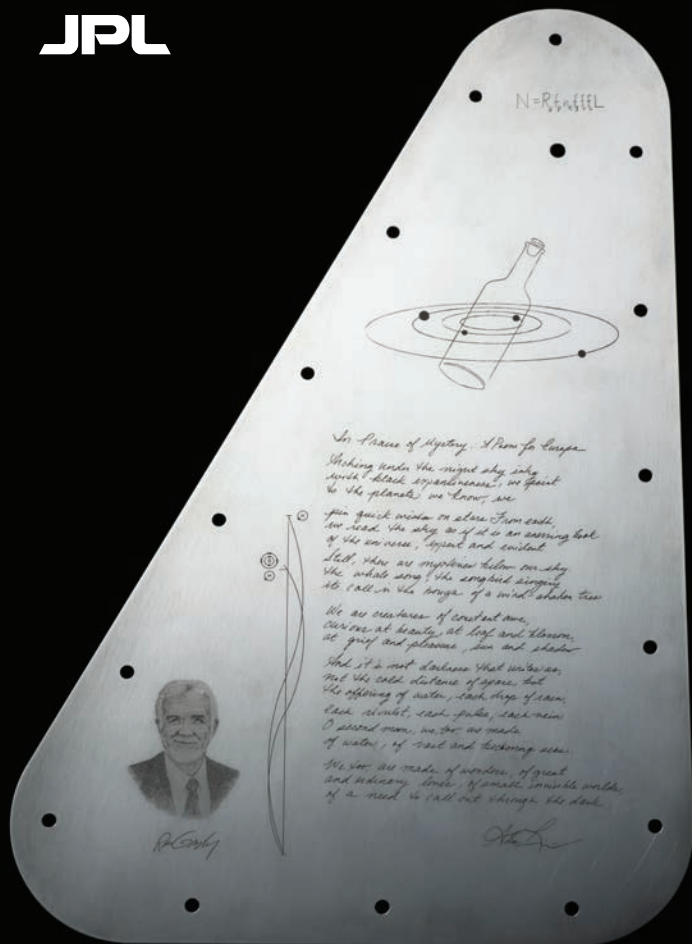 JPL
N=R*fₚnₑfₗfᵢf꜀L
In Praise of Mystery: A Poem for Europa
Arching under the night sky inky
with black expansiveness, we point
to the planets we know, we
pin quick wishes on stars. From earth,
we read the sky as if it is an unerring book
of the universe, expert and evident.
Still, there are mysteries below our sky:
the whale song, the songbird singing
its call in the bough of a wind-shaken tree.
We are creatures of constant awe,
curious at beauty, at leaf and blossom,
at grief and pleasure, sun and shadow.
And it is not darkness that unites us,
not the cold distance of space, but
the offering of water, each drop of rain,
each rivulet, each pulse, each vein.
O second moon, we, too, are made
of water, of vast and beckoning seas.
We, too, are made of wonders, of great
and ordinary loves, of small invisible worlds,
of a need to call out through the dark.